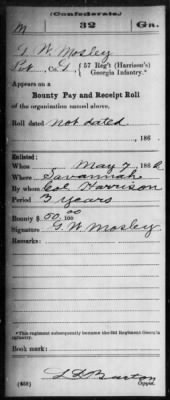 (Confederate.)
M 32 Ga.
G. W. Mosley
Pvt, Co. I, 57 Reg't (Harrison's)
Georgia Infantry.*
Appears on a
Bounty Pay and Receipt Roll
of the organization named above.
Roll dated Not dated
, 186 .
Enlisted:
When May 7, 1862
Where Savannah
By whom Col Harrison
Period 3 years
Bounty $50.00/100
Signature G. W. Mosley
Remarks:
*This regiment subsequently became the 32d Regiment Georgia
Infantry.
Book mark:
L D Burton
(653) Copyist.